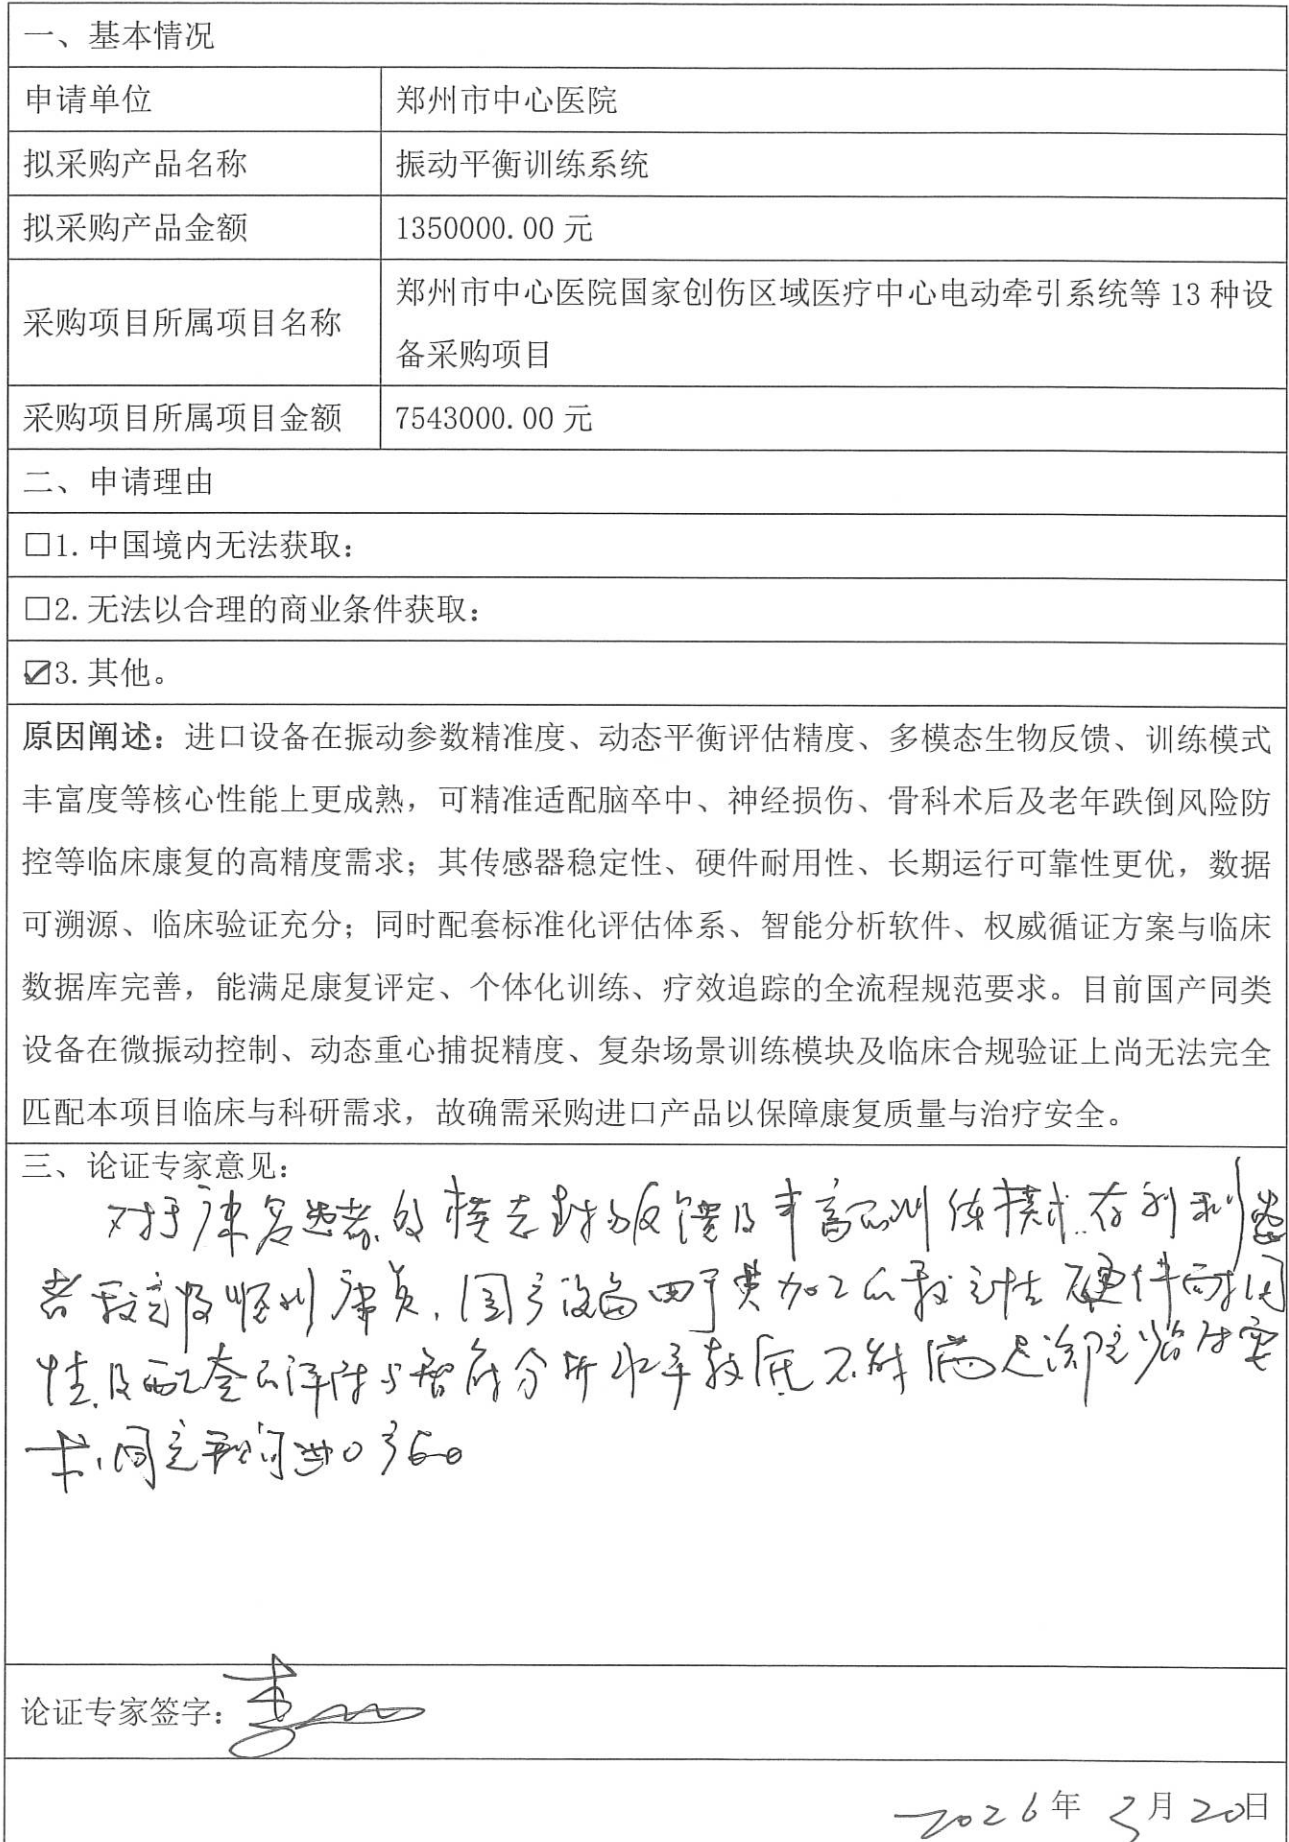 一、基本情况
申请单位 郑州市中心医院
拟采购产品名称 振动平衡训练系统
拟采购产品金额 1350000.00 元
采购项目所属项目名称 郑州市中心医院国家创伤区域医疗中心电动牵引系统等 13 种设
备采购项目
采购项目所属项目金额 7543000.00 元
二、申请理由
□1.中国境内无法获取：
□2.无法以合理的商业条件获取：
☑3.其他。
原因阐述：进口设备在振动参数精准度、动态平衡评估精度、多模态生物反馈、训练模式
丰富度等核心性能上更成熟，可精准适配脑卒中、神经损伤、骨科术后及老年跌倒风险防
控等临床康复的高精度需求；其传感器稳定性、硬件耐用性、长期运行可靠性更优，数据
可溯源、临床验证充分；同时配套标准化评估体系、智能分析软件、权威循证方案与临床
数据库完善，能满足康复评定、个体化训练、疗效追踪的全流程规范要求。目前国产同类
设备在微振动控制、动态重心捕捉精度、复杂场景训练模块及临床合规验证上尚无法完全
匹配本项目临床与科研需求，故确需采购进口产品以保障康复质量与治疗安全。
三、论证专家意见：
对于康复患者的模态生物反馈及丰富的训练模式，有利
者 康复，国产设备由于其 硬件耐用
性及配套的评估与智能分析水平较低不能满足 要
求，同意采购进口产品
论证专家签字：
2026年 3月 20日